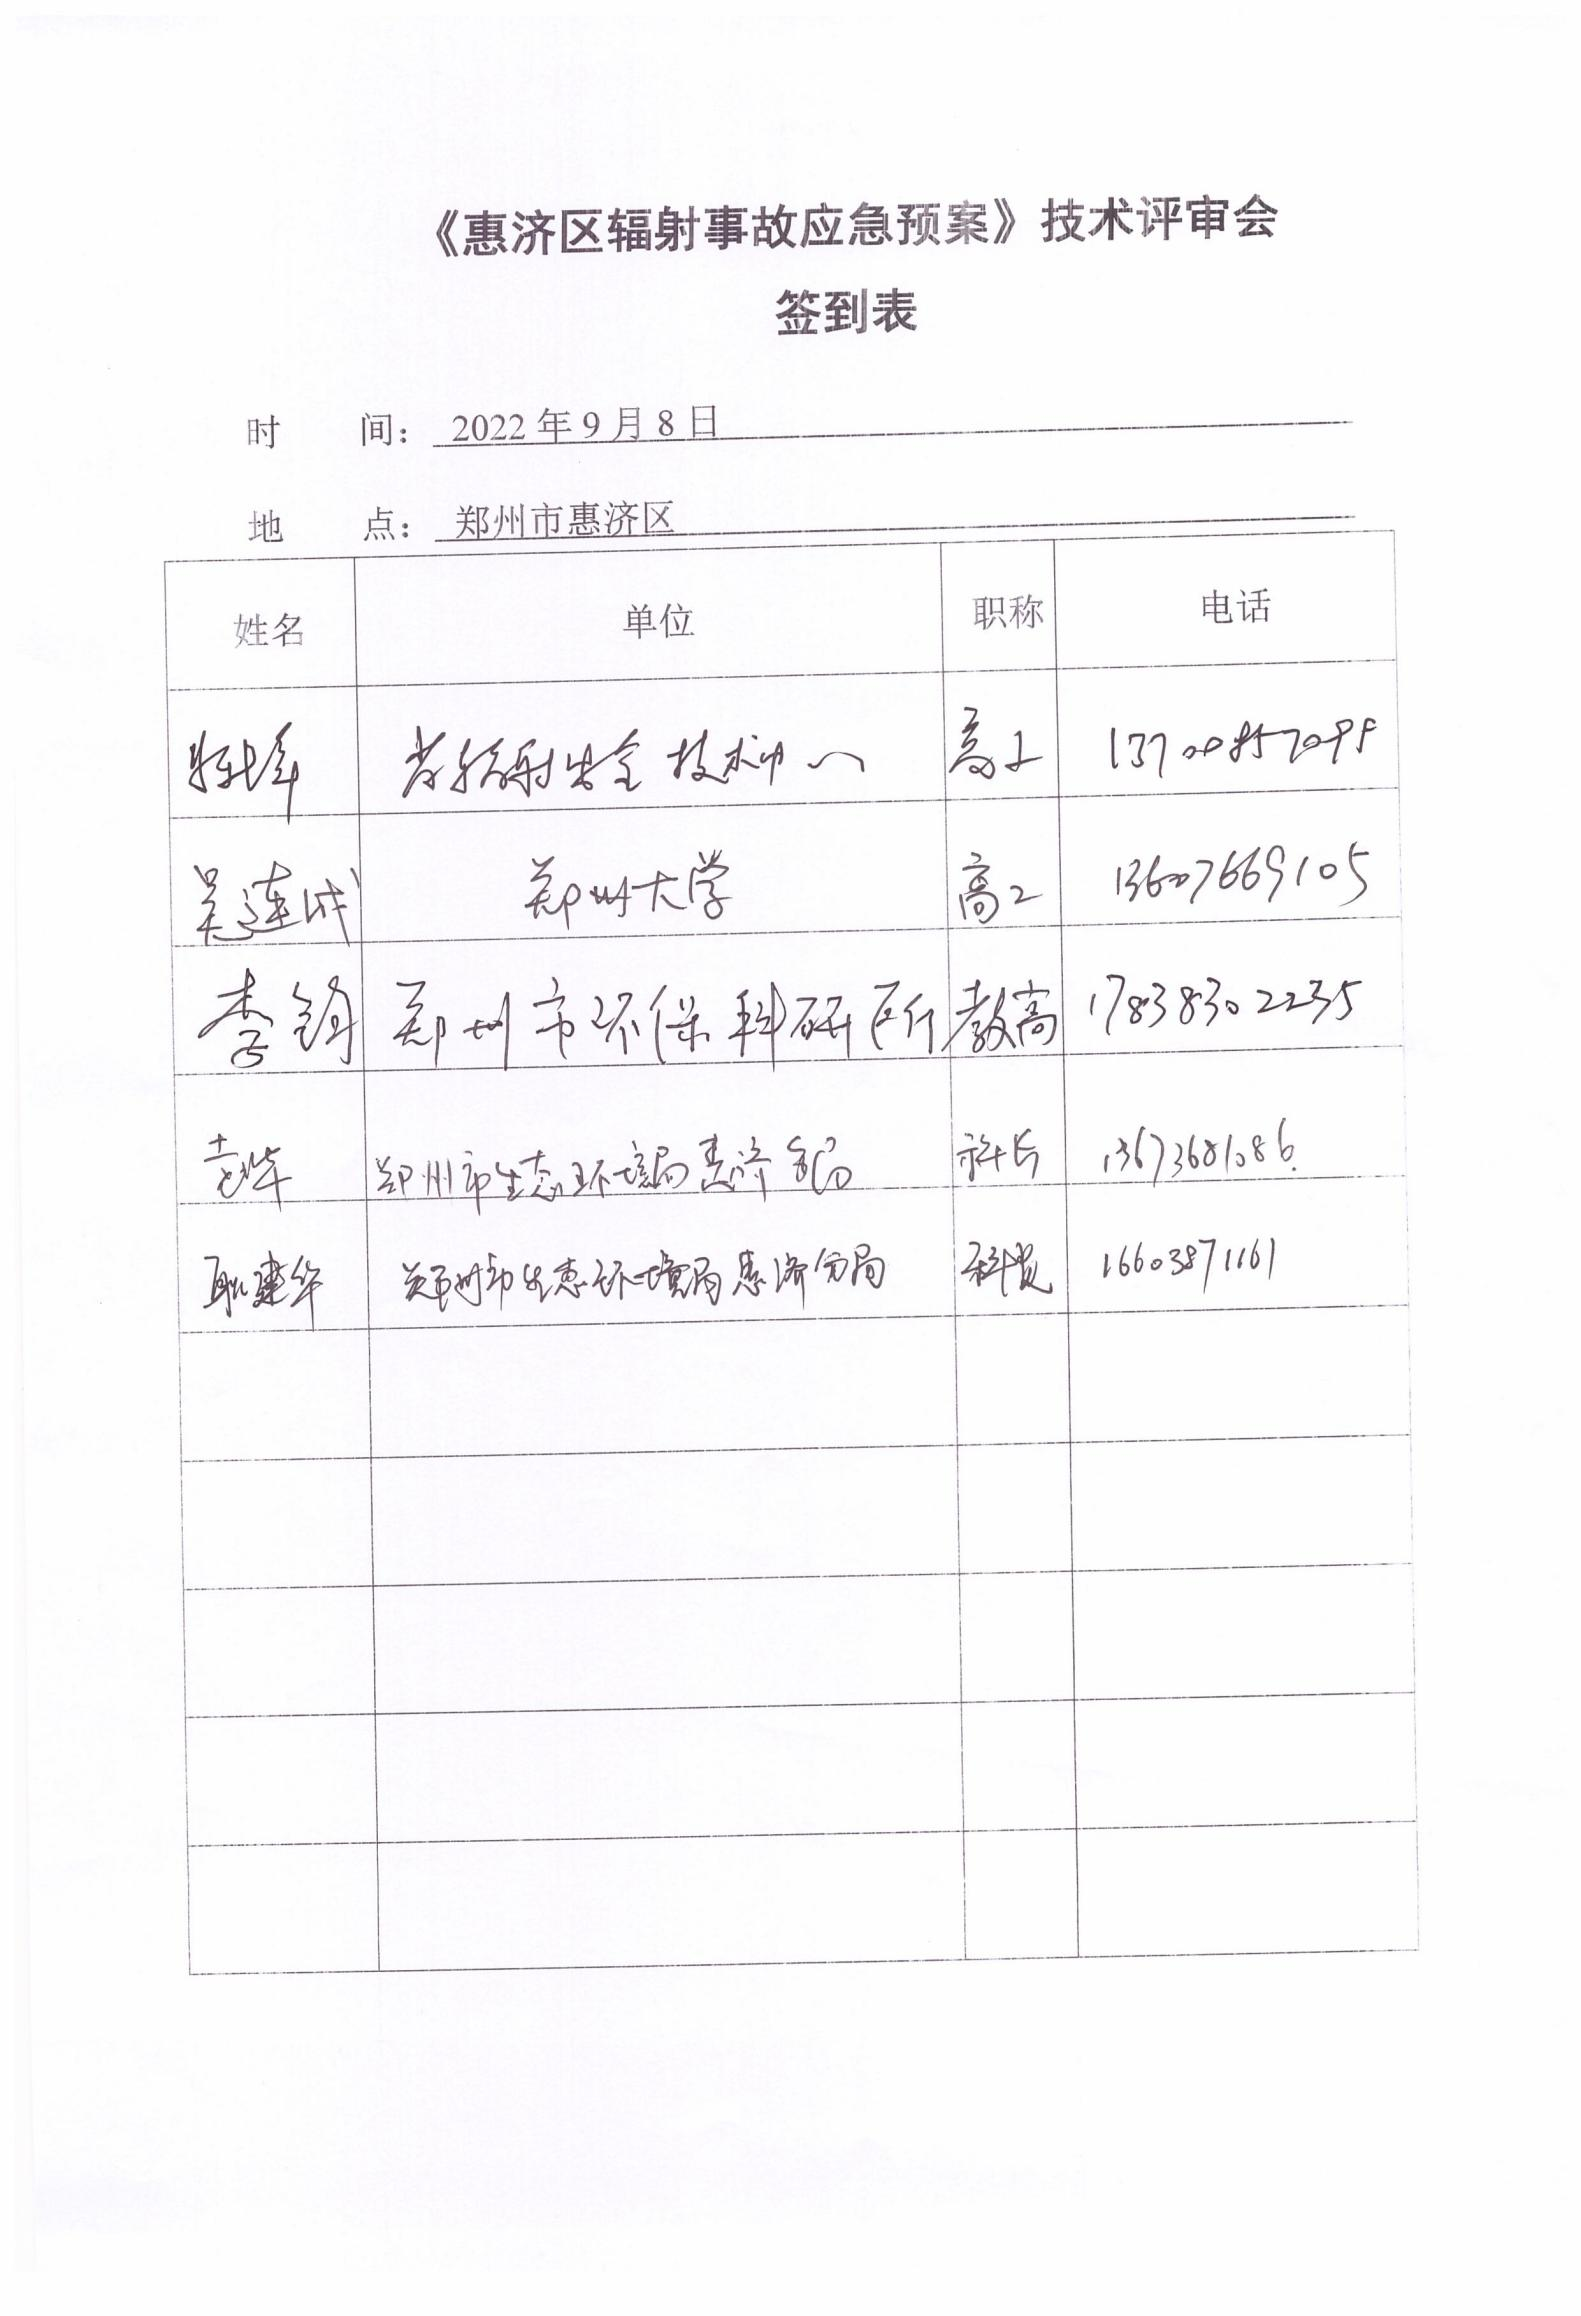 《惠济区辐射事故应急预案》技术评审会
签到表
时 间： 2022 年 9 月 8 日
地 点： 郑州市惠济区
姓名 单位 职称 电话
省辐射安全技术中心 高工
吴连成 郑州大学 高工 13607669105
李钧 郑州市环保科研所 教高 17838302235
郑州市生态环境局惠济分局 科长 13673681086
耿建华 郑州市生态环境局惠济分局 科员 16603871161